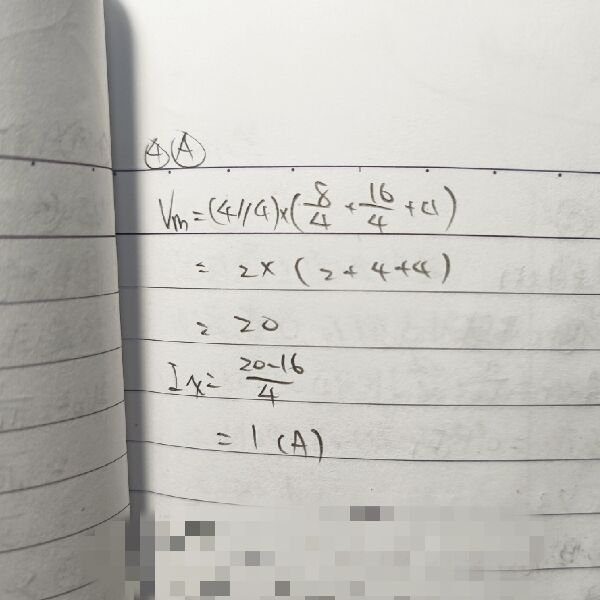 ④Ⓐ
Vm=(4//4)×(8/4+16/4+4)
= 2×(2+4+4)
= 20
Ix=(20-16)/4
= 1 (A)